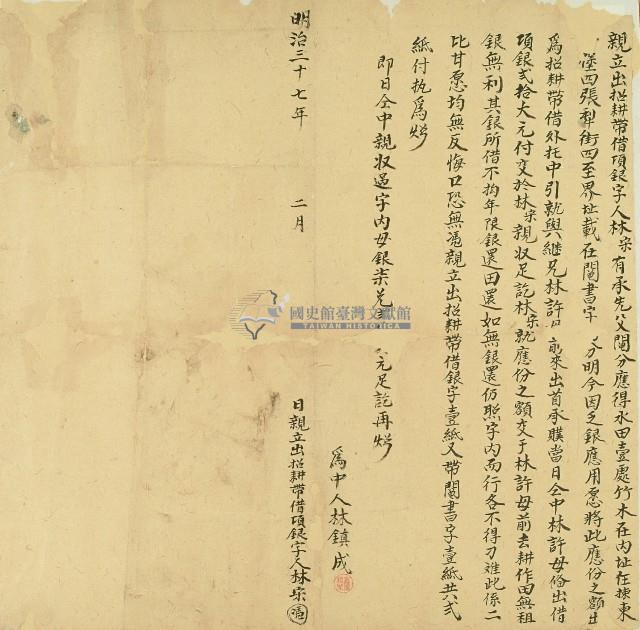 親立出招耕帶借項銀字人林宗有承先父鬮分應得水田壹處竹木在內址在揀東
堡四張犁街四至界址載在鬮書字 明今因乏銀應用愿將此應份之額出
為招耕帶借外托中引就與繼兄林許 前來出首承贌當日仝中林許母俻出借
項銀弍拾大元付交於林宗親收足訖林宗就應份之額交于林許母前去耕作田無租
銀無利其銀所借不拘年限銀還田還如無銀還仍照字內而行各不得刁难此係二
比甘愿均無反悔口恐無憑親立出招耕帶借銀字壹紙又帶鬮書字壹紙共弍
紙付执為炤
即日仝中親收過字內母銀柒兌 元足訖再炤
為中人林鎮成
明治三十七年 二月 日親立出招耕帶借項銀字人林宗
國史館臺灣文獻館
TAIWAN HISTORICA